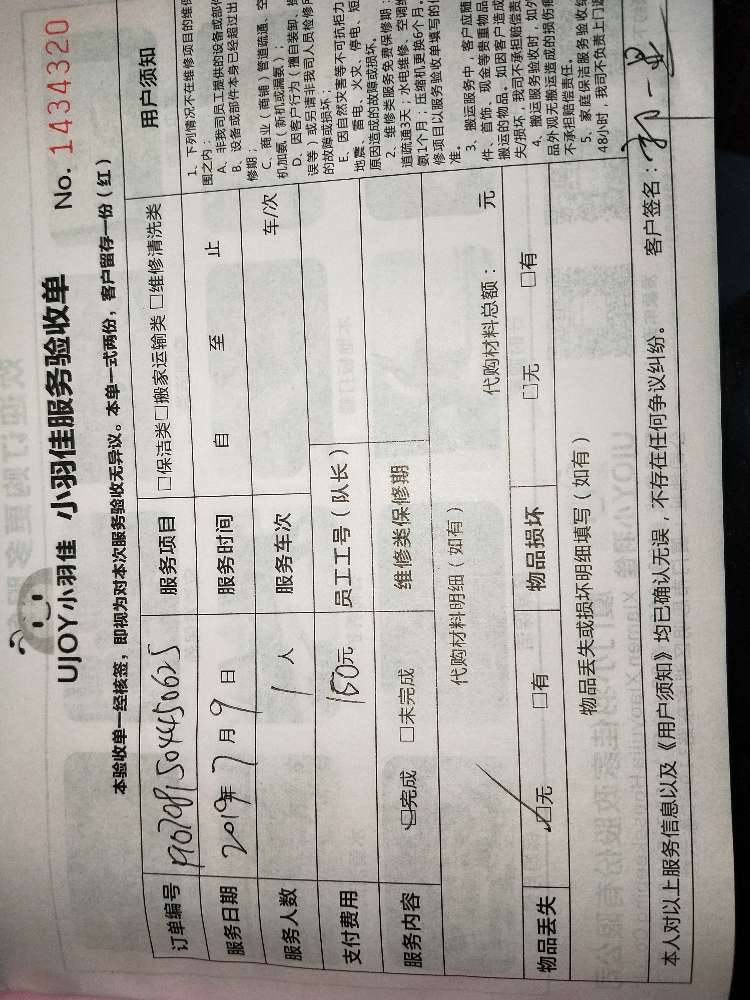 UJOY小羽佳 小羽佳服务验收单 No. 1434320
本验收单一经核签，即视为对本次服务验收无异议。本单一式两份，客户留存一份（红）
订单编号 服务项目 □保洁类□搬家运输类□维修清洗类
服务日期 2019年7月9日 服务时间 自 至 止
服务人数 1人 服务车次 车/次
支付费用 150元 员工工号（队长）
服务内容 □完成 □未完成 维修类保修期
代购材料明细（如有） 代购材料总额： 元
物品丢失 □无 □有 物品损坏 □无 □有
物品丢失或损坏明细填写（如有）
本人对以上服务信息以及《用户须知》均已确认无误，不存在任何争议纠纷。 客户签名：
用户须知
1、下列情况不在维修项目的维保
围之内：
A、非我司员工提供的设备或部件
B、设备或部件本身已经超过出
修期；
C、商业（商铺）管道疏通、空
机加氨（新机或漏氨）；
D、因客户行为（擅自装卸、
误等）或另请非我司人员检修
的故障或损坏；
E、因自然灾害等不可抗拒力
地震、雷电、火灾、停电、
原因造成的故障或损坏。
2、维修类服务免费保修期：
道疏通3天；水电维修、空调
氨1个月；压缩机更换6个月。
修项目以服务验收单填写的
准。
3、搬运服务中，客户应随
件、首饰、现金等贵重物品
搬运的物品。如因客户造成
失/损坏，我司不承担赔偿责
4、搬运服务验收时，如外
品外观无搬运造成的损伤
不承担赔偿责任。
5、家庭保洁服务验收
48小时，我司不负责上门返